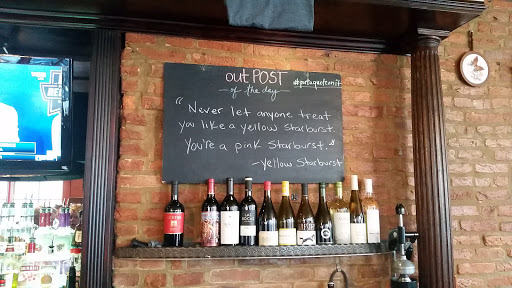 outPOST
of the day
#putaquoteonit
"Never let anyone treat
you like a yellow starburst.
You're a pink starburst."
-yellow Starburst